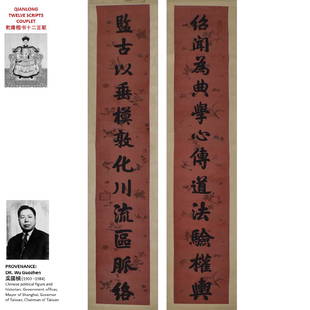 QIANLONG
TWELVE SCRIPTS
COUPLET
乾隆楷书十二言联
紹聞為典學心傳道法驗權輿
監古以垂模敦化川流區脈絡
PROVENANCE:
DR. Wu Guozhen
吴國楨 (1903–1984)
Chinese political figure and
historian, Government officer,
Mayor of Shanghai, Governor
of Taiwan, Chairman of Taiwan